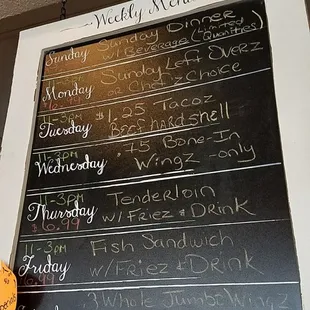 Weekly Menu
Sunday
Sunday Dinner
w/ Beverage (Limited
Quantities)
11-3pm
Monday
Sunday Left Overz
or Chef'z Choice
11-3pm
Tuesday
$1.25 Tacoz
Beef Hard Shell
11-3pm
Wednesday
.75 Bone-In
Wingz -only
11-3pm
Thursday
$6.99
Tenderloin
w/ Friez & Drink
11-3pm
Friday
$6.99
Fish Sandwich
w/ Friez & Drink
3 Whole Jumbo Wingz